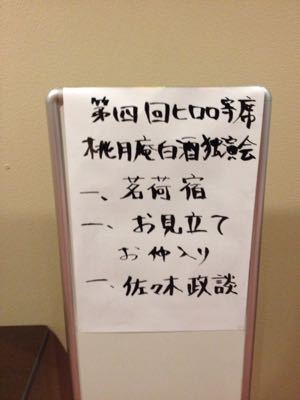 第四回ヒロロ寄席
桃月庵白酒独演会
一、茗荷宿
一、お見立て
お仲入り
一、佐々木政談